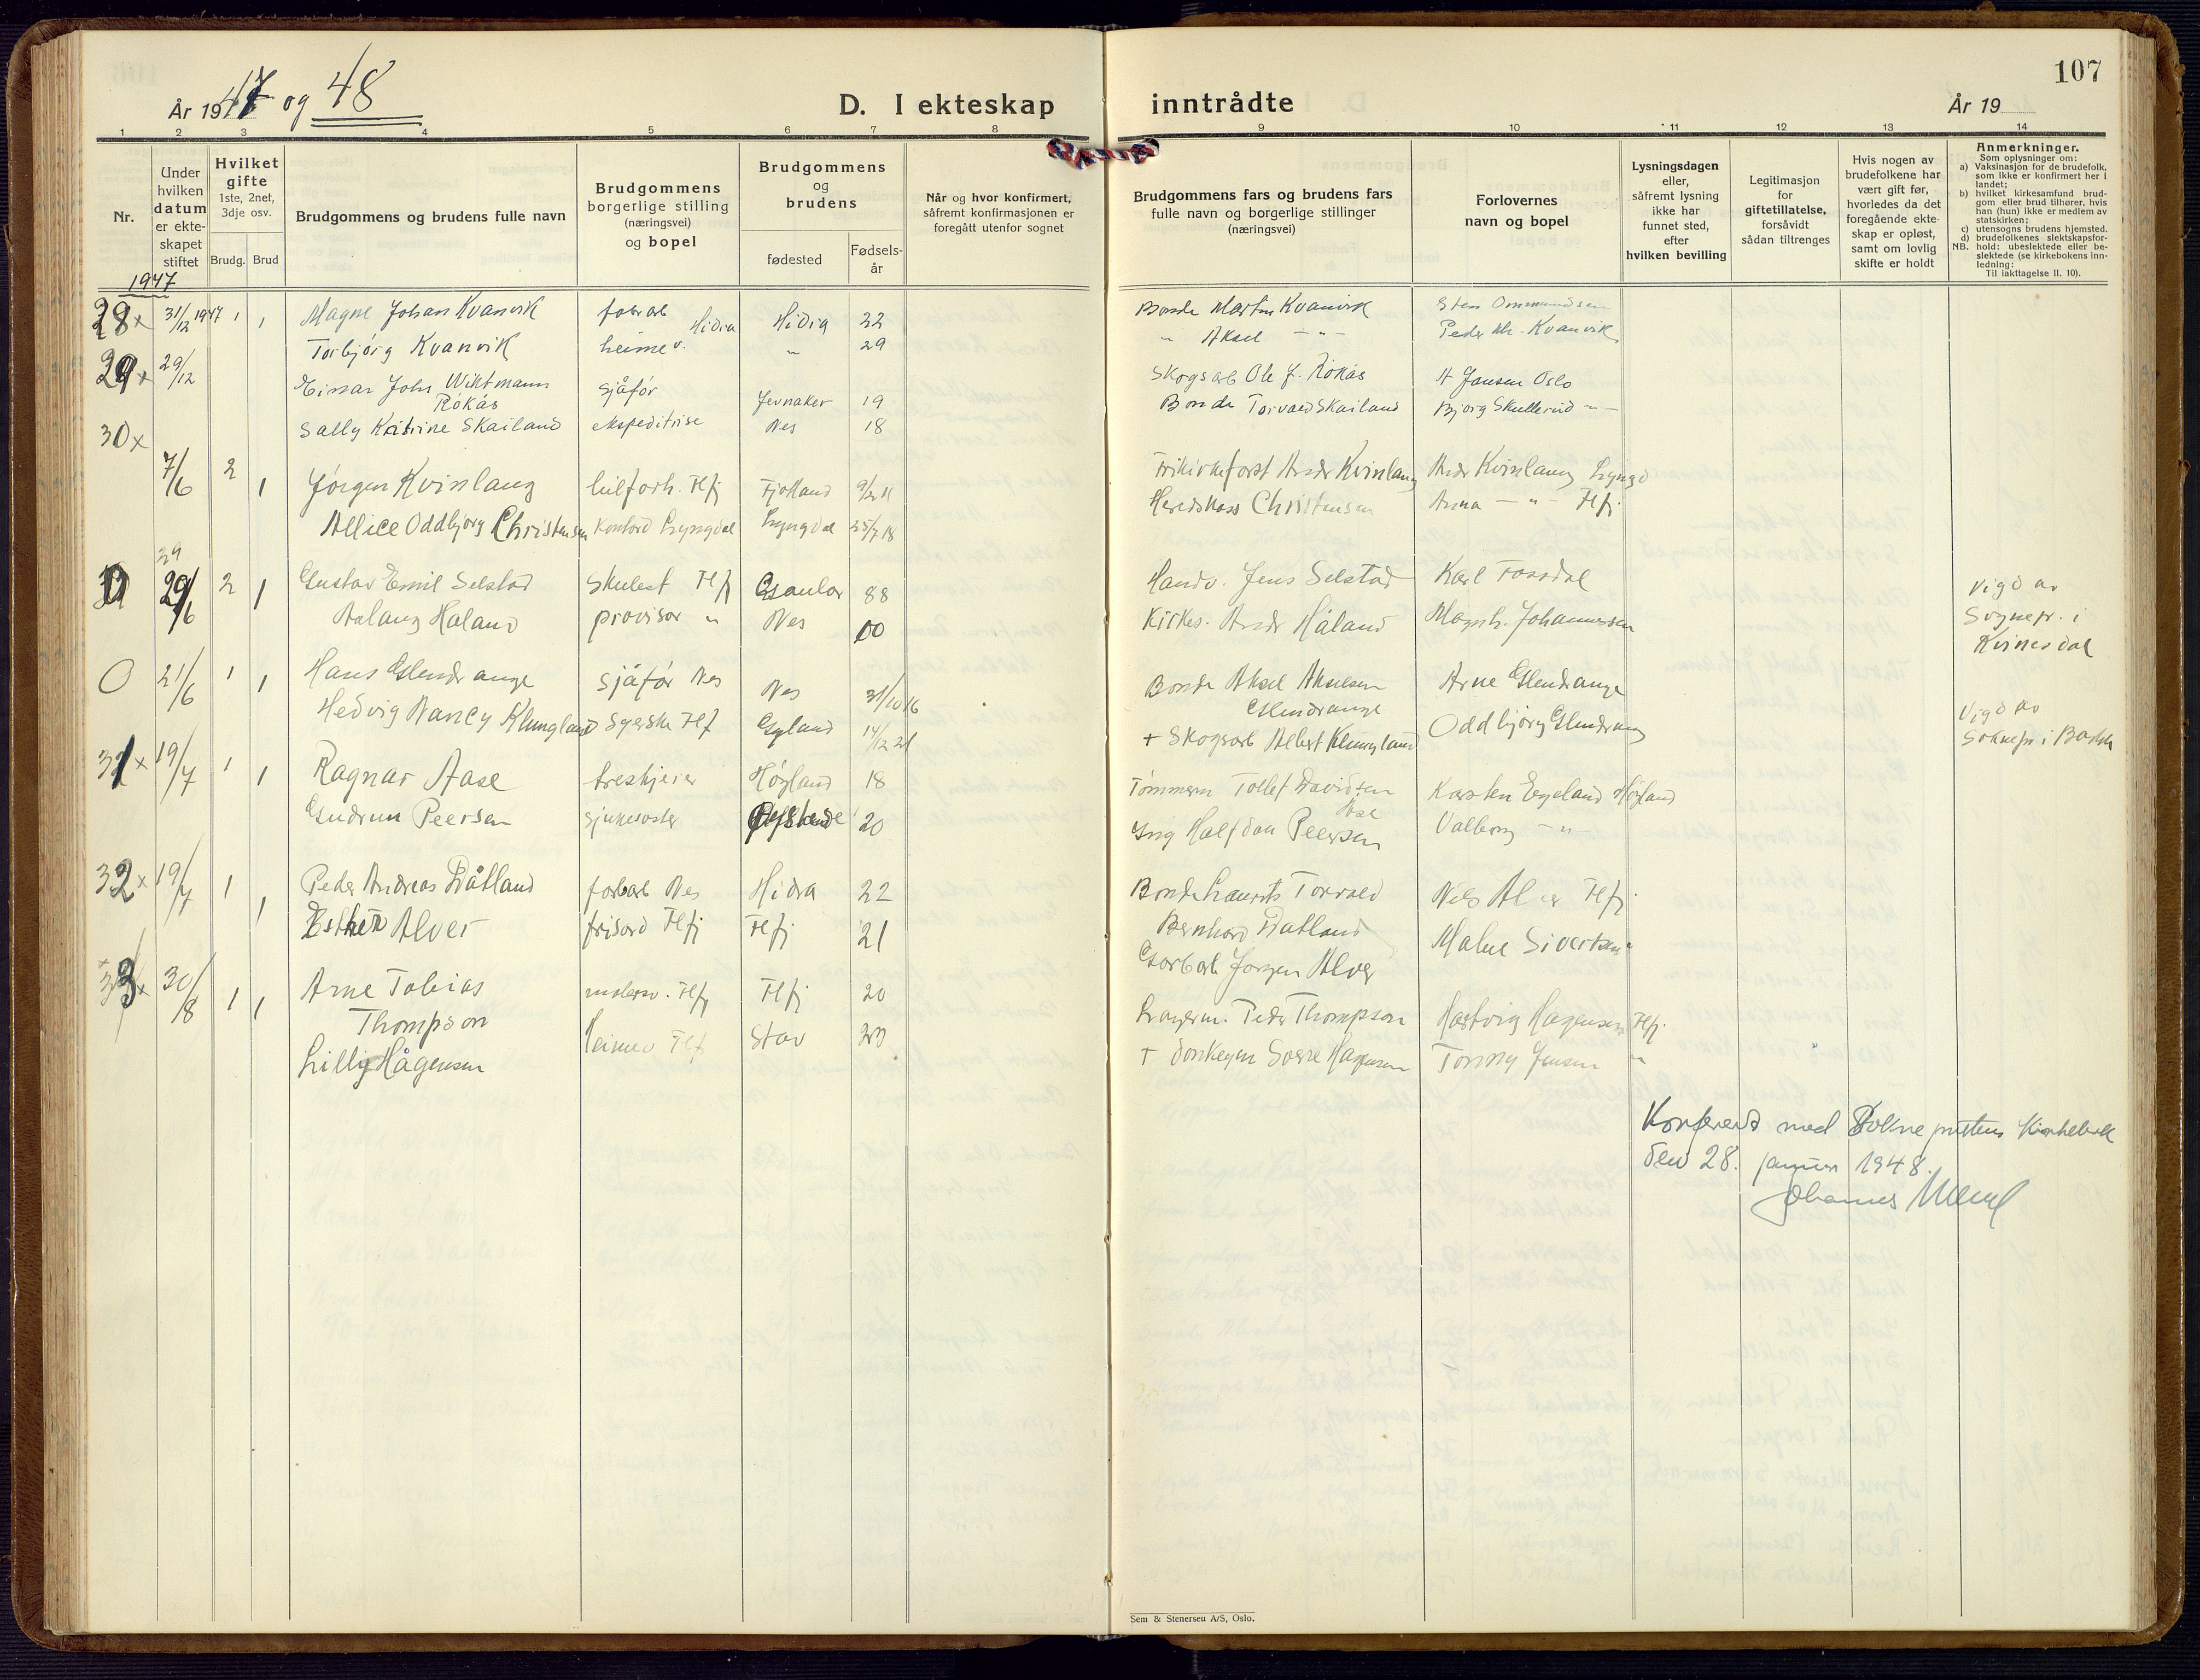 År 1947 og 48
D. I ekteskap inntrådte
107
År 19
1 2 3 4 5 6 7 8 9 10 11 12 13 14
Nr.
Under hvilken datum er ekteskapet stiftet
Hvilket gifte 1ste, 2net, 3dje osv.
Brudg. Brud
Brudgommens og brudens fulle navn
Brudgommens borgerlige stilling (næringsvei) og bopel
Brudgommens og brudens
fødested
Fødsels-år
Når og hvor konfirmert, såfremt konfirmasjonen er foregått utenfor sognet
Brudgommens fars og brudens fars fulle navn og borgerlige stillinger (næringsvei)
Forlovernes navn og bopel
Lysningsdagen eller, såfremt lysning ikke har funnet sted, efter hvilken bevilling
Legitimasjon for giftetillatelse, forsåvidt sådan tiltrenges
Hvis nogen av brudefolkene har vært gift før, hvorledes da det foregående ekteskap er opløst, samt om lovlig skifte er holdt
Anmerkninger.
Som oplysninger om:
a) Vaksinasjon for de brudefolk, som ikke er konfirmert her i landet;
b) hvilket kirkesamfund brudgom eller brud tilhører, hvis han (hun) ikke er medlem av statskirken;
c) utensogns brudens hjemsted.
d) brudefolkenes slektskapsforhold: ubeslektede eller beslektede (se kirkebokens innledning:
NB. Til iakttagelse II, 10).
1947
28 x 31/12 1947 1 1 Magne Johan Kvanvik fabrarb Hidra Hidra 22 Bonde Martin Kvanvik Sten Ommundsen
Torbjørg Kvanvik heimev. " 29 " Aksel - " - Peder M. Kvanvik
29 x 29/12 Einar John Wiktmann Rökås sjåfør Jevnaker 19 Skogsarb Ole J. Rökås H Jansen Oslo
Sally Katrine Skailand ekspeditrise Nes 18 Bonde Torvald Skailand Bjorg Skullerud - " -
30 x
7/6 2 1 Jørgen Kvinlaug bilforh. Flfj Fjotland 9/2 11 Frikirkeforst Andr Kvinlaug Andr Kvinlaug Lyngd
Allice Oddbjørg Christensen Kontord Lyngdal Lyngdal 25/7 18 Heredskass Christensen Anna - " - Flfj
29/6 2 1 Gustav Emil Selstad Skulest Flfj Gaular 88 Handv. Jens Selstad Karl Fossdal Vigd av
Aslaug Håland provisor " Nes 00 Kirkes. Andr Håland Magnh. Johannessen Sognepr. i
Kvinesdal
0 21/6 1 1 Hans Glendrange sjåfør Nes Nes 31/10 16 Bonde Aksel Akselsen Glendrange Arne Glendrange
Hedvig Nancy Klungland Syerske Flf Gyland 14/12 21 + Skogsarb Albert Klungland Oddbjørg Glendrang Vigd av
Soknepr i Bakke
31 x 19/7 1 1 Ragnar Aase treskjerer Høyland 18 Tømmerm Tollef Davidsen Åse Karsten Egeland Høyland
Gudrun Peersen sjukesøster 20 Ing Halfdan Peersen Valborg - "
32 x 19/7 1 1 Peder Andreas Dåtland fabarb Nes Hidra 22 Bonde Laurits Torvald Bernhard Dåtland Nils Alver Flfj
Esther Alver frisørd Flfj Flfj 21 Garbarb Jørgen Alver Malne Sivertsen "
33 x 30/8 1 1 Arne Tobias Thompson Flfj Flfj 20 Lagerm. Peder Thompson Hartvig Hagensen Flfj.
Lilly Hågensen Heimev Flf Stav 23 + donkeym Sverre Hagensen Tonny Jensen "
Konferert med Sokneprestens Kirkebok
den 28. januar 1948.
Johannes
Sem & Stenersen A/S, Oslo.